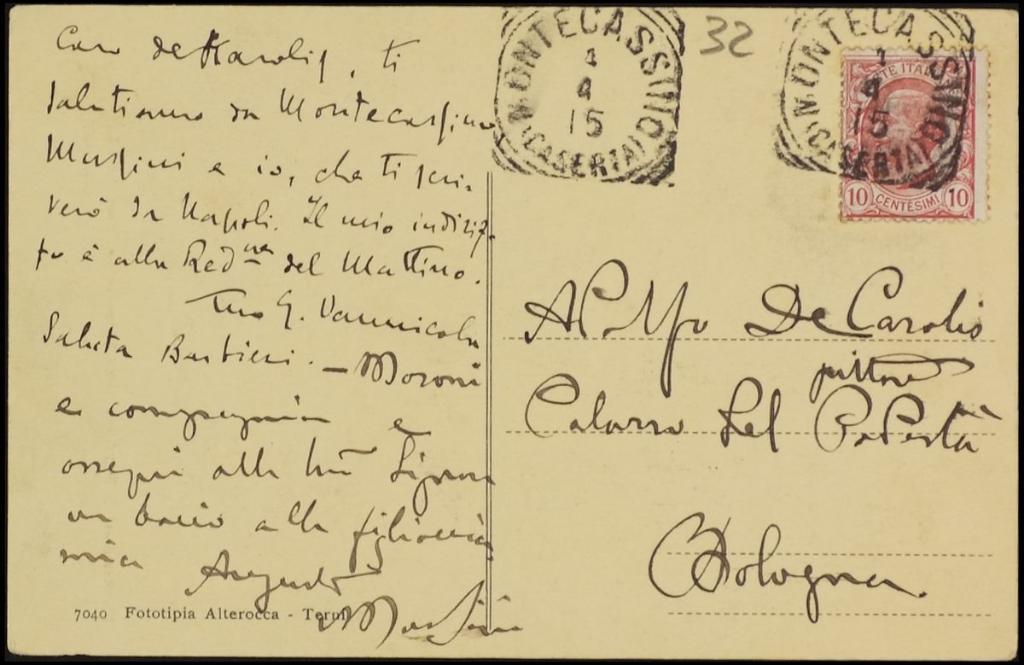 Caro de Karolis, ti
salutiamo da Montecassino
Mussini e io, che ti scri-
verò da Napoli. Il mio indiriz-
zo è alla Redne del Mattino.
Tuo G. Vannicola
Saluta Barbieri. — Moroni
e compagnia e
ossequi alla tua Signora
un bacio alla figlioccia
mia Augusto
Mussini
7040 Fototipia Alterocca - Terni
MONTECASSINO
1
4
15
(CASERTA)
32
MONTECASSINO
1
4
15
(CASERTA)
POSTE ITALIANE
10 CENTESIMI 10
Adolfo De Carolis
pittore
Palazzo del Podestà
Bologna.